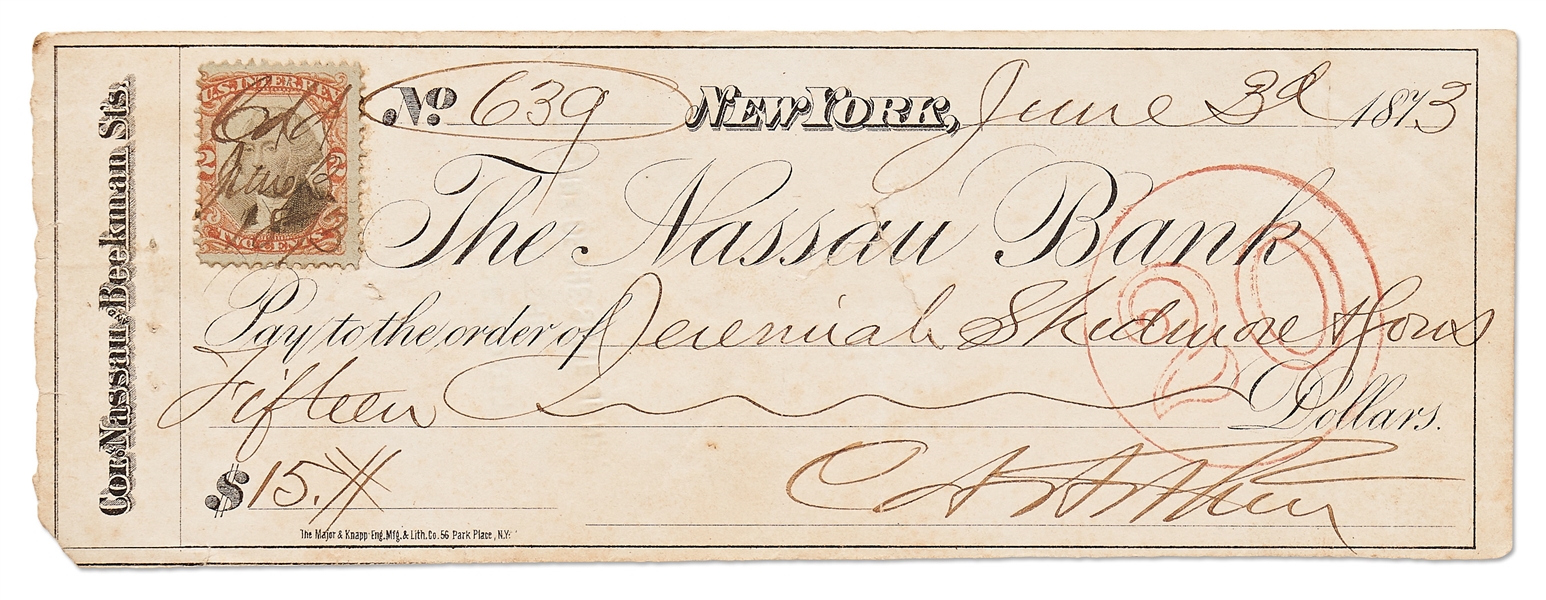 Cor. Nassau and Beekman Sts.
U.S. INTER. REV.
2 2
TWO CENTS
No. 639 NEW YORK, June 3d 1873
The Nassau Bank
Pay to the order of Jeremiah Skidmore & Sons
Fifteen Dollars.
20
$15.
C A Arthur
The Major & Knapp Eng. Mfg. & Lith. Co. 56 Park Place, N.Y.